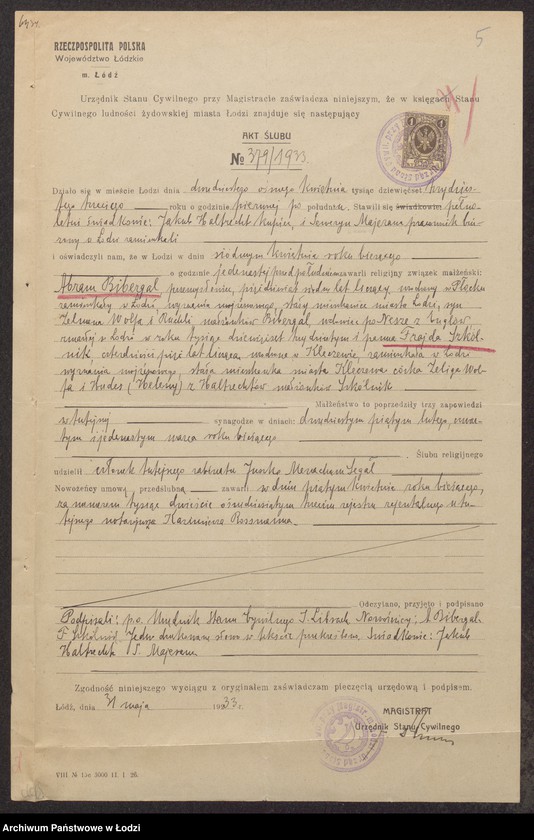 5
RZECZPOSPOLITA POLSKA
Województwo Łódzkie
m. Łódź
Urzędnik Stanu Cywilnego przy Magistracie zaświadcza niniejszym, że w księgach Stanu
Cywilnego ludności żydowskiej miasta Łodzi znajduje się następujący
AKT ŚLUBU
№ 379/1933
Działo się w mieście Łodzi dnia dwudziestego ósmego kwietnia tysiąc dziewięćset trzydzies-
tego trzeciego roku o godzinie pierwszej po południu. Stawili się świadkowie: pełno-
letni świadkowie: Jakub Haltrecht kupiec, i Seweryn Majeran pracownik biu-
rowy w Łodzi zamieszkali
i oświadczyli nam, że w Łodzi w dniu siódmym kwietnia roku bieżącego
o godzinie jedenastej przed południem zawarli religijny związek małżeński:
Abram Bibergal przemysłowiec, pięćdziesiąt lat liczący urodzony w Płocku
zamieszkały w Łodzi, wyznania mojżeszowego, stały mieszkaniec miasta Łodzi, syn
Zelmana Wolfa i Racheli małżonków Bibergal, wdowiec po Nesze z
zmarłej w Łodzi w roku tysiąc dziewięćset trzydziestym i panna Frajda Szkól-
nik, czterdzieści pięć lat licząca, urodzona w Kleczewie, zamieszkała w Łodzi
wyznania mojżeszowego, stała mieszkanka miasta Kleczewa córka Zeliga Wol-
fa i Hudes (Heleny) z Haltrechtów małżonków Szkólnik
Małżeństwo to poprzedziły trzy zapowiedzi
w tutejszej synagodze w dniach: dwudziestym piątym lutego, czwar-
tym i jedenastym marca roku bieżącego
Ślubu religijnego
udzielił członek tutejszego rabinatu Menachem Segał
Nowożeńcy umowę przedślubną zawarli w dniu piątym kwietnia roku bieżącego,
za numerem tysiąc dwieście osiemdziesiątym trzecim rejestru rejentalnego u tu-
tejszego notarjusza Kazimierza Rossmana.
Odczytano, przyjęto i podpisano
Podpisali: p.o. Urzędnik Stanu Cywilnego J. Librach, Nowożeńcy: A. Bibergal.
F. Szkólnik. Jedno drukowane słowo w tekście przekreślono. Świadkowie: Jakub
Haltrecht S. Majeran
Zgodność niniejszego wyciągu z oryginałem zaświadczam pieczęcią urzędową i podpisem.
Łódź, dnia 31 maja 1933 r.
MAGISTRAT
Urzędnik Stanu Cywilnego
Archiwum Państwowe w Łodzi